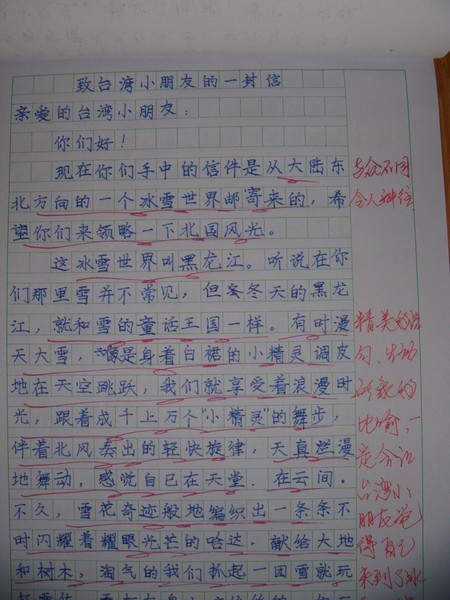 致台湾小朋友的一封信
亲爱的台湾小朋友：
你们好！
现在你们手中的信件是从大陆东
北方向的一个冰雪世界邮寄来的，希
望你们来领略一下北国风光。
这冰雪世界叫黑龙江。听说在你
们那里雪并不常见，但冬天的黑龙
江，就和雪的童话王国一样。有时漫
天大雪，像是身着白裙的小精灵调皮
地在天空跳跃，我们就享受着浪漫时
光，跟着成千上万个“小精灵”的舞步，
伴着北风奏出的轻快旋律，天真烂漫
地舞动，感觉自己在天堂．在云间。
不久，雪花奇迹般地编织出一条条不
时闪耀着耀眼光芒的哈达，献给大地
和树木，淘气的我们抓起一团雪就玩
与众不同
令人神往
精美的语
句，生动
形象的
比喻，一
定会让
台湾小
朋友觉
得自己
来到了冰